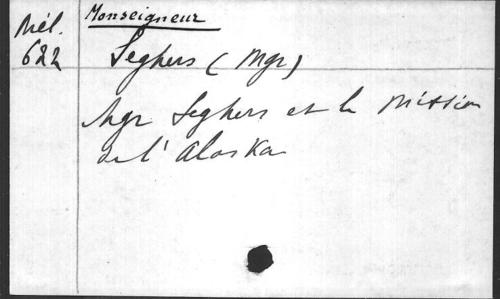 Mél.
622
Monseigneur
Seghers (Mgr)
Mgr Seghers et la Mission
de l'Alaska